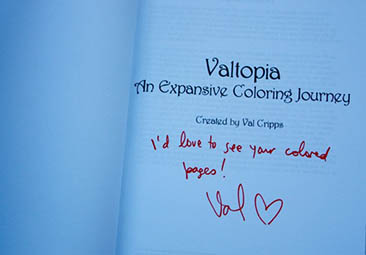 Valtopia
An Expansive Coloring Journey
Created by Val Cripps
I'd love to see your colored
pages!
Val